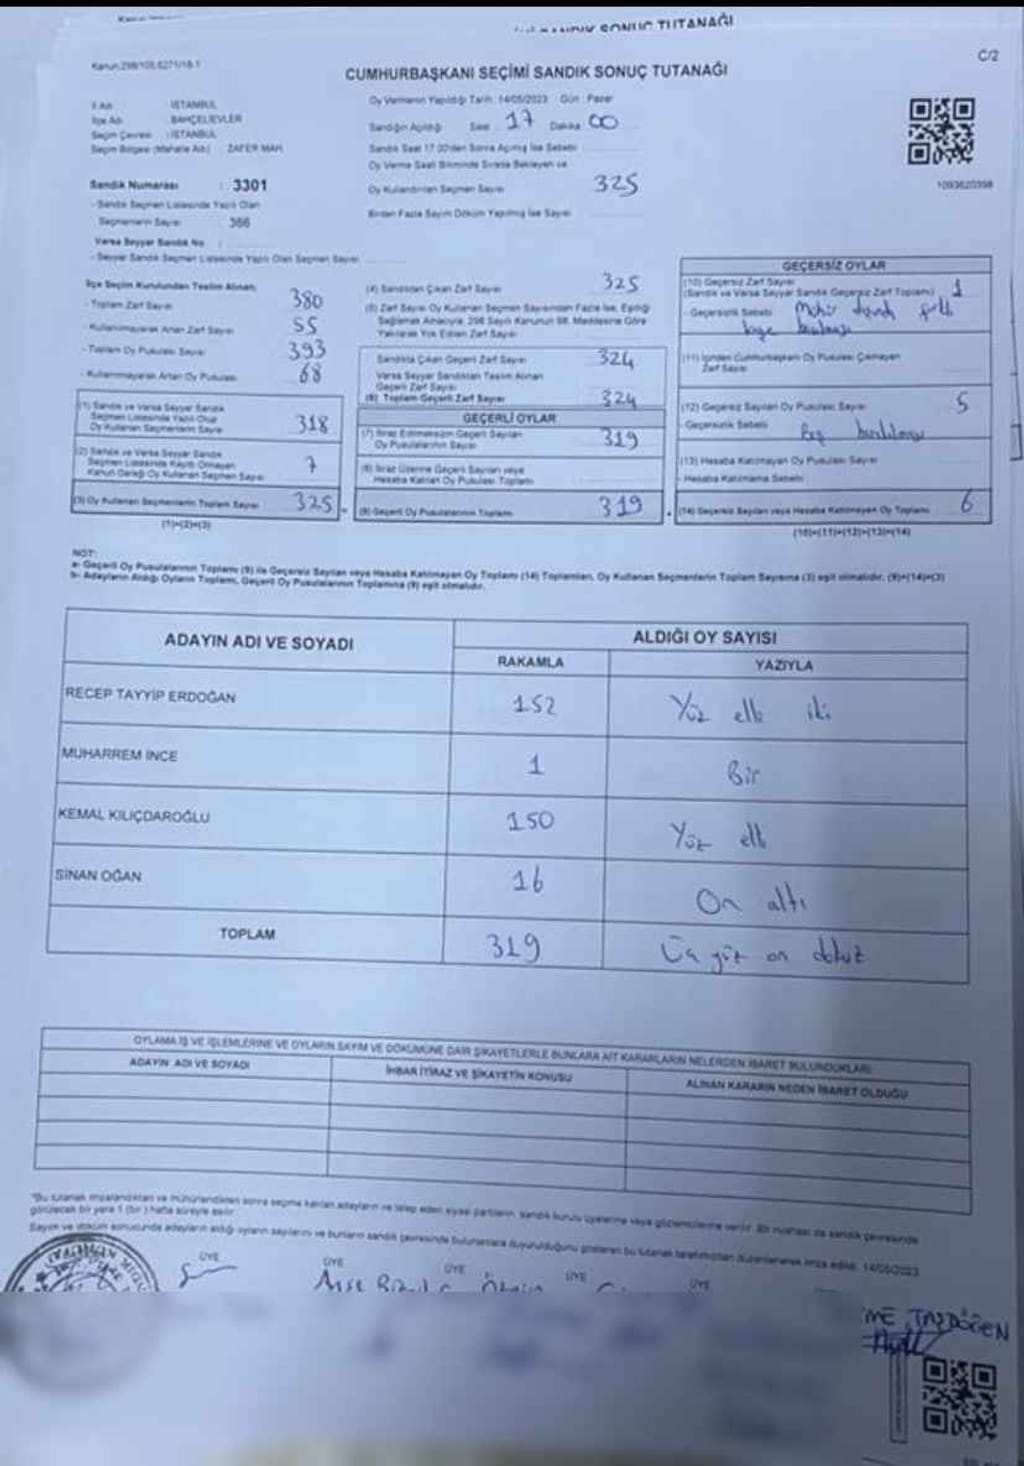 SANDIK SONUÇ TUTANAĞI
C/2
CUMHURBAŞKANI SEÇİMİ SANDIK SONUÇ TUTANAĞI
İl Adı İSTANBUL
İlçe Adı BAHÇELİEVLER
Seçim Çevresi : İSTANBUL
Seçim Bölgesi (Mahalle Adı) ZAFER MAH
Oy Vermenin Yapıldığı Tarih: 14/05/2023 Gün : Pazar
Sandığın Açıldığı Saat 17 Dakika 00
Sandık Saat 17:00'den Sonra Açılmış İse Sebebi
Oy Verme Saati Bitiminde Sırada Bekleyen ve
Oy Kullandırılan Seçmen Sayısı 325
Birden Fazla Sayım Döküm Yapılmış İse Sayısı
Sandık Numarası : 3301
- Sandık Seçmen Listesinde Yazılı Olan
Seçmenlerin Sayısı 366
Varsa Seyyar Sandık No :
- Seyyar Sandık Seçmen Listesinde Yazılı Olan Seçmen Sayısı
İlçe Seçim Kurulundan Teslim Alınan;
- Toplam Zarf Sayısı 380
- Kullanılmayarak Artan Zarf Sayısı 55
- Toplam Oy Pusulası Sayısı 393
- Kullanılmayarak Artan Oy Pusulası 68
(1) Sandık ve Varsa Seyyar Sandık
Seçmen Listesinde Yazılı Olup
Oy Kullanan Seçmenlerin Sayısı 318
(2) Sandık ve Varsa Seyyar Sandık
Seçmen Listesinde Kaydı Olmayan
Kanun Gereği Oy Kullanan Seçmen Sayısı 7
(3) Oy Kullanan Seçmenlerin Toplam Sayısı 325
(1)+(2)=(3)
(4) Sandıktan Çıkan Zarf Sayısı 325
(5) Zarf Sayısı Oy Kullanan Seçmen Sayısından Fazla İse, Eşitliği
Sağlamak Amacıyla, 298 Sayılı Kanunun 98. Maddesine Göre
Yakılarak Yok Edilen Zarf Sayısı
Sandıkta Çıkan Geçerli Zarf Sayısı 324
Varsa Seyyar Sandıktan Teslim Alınan
Geçerli Zarf Sayısı
(6) Toplam Geçerli Zarf Sayısı 324
GEÇERLİ OYLAR
(7) İtiraz Edilmeksizin Geçerli Sayılan
Oy Pusulalarının Sayısı 319
(8) İtiraz Üzerine Geçerli Sayılan veya
Hesaba Katılan Oy Pusulası Toplamı
(9) Geçerli Oy Pusulalarının Toplamı 319
GEÇERSİZ OYLAR
(10) Geçersiz Zarf Sayısı
(Sandık ve Varsa Seyyar Sandık Geçersiz Zarf Toplamı) 1
- Geçersizlik Sebebi
(11) İçinden Cumhurbaşkanı Oy Pusulası Çıkmayan
Zarf Sayısı
(12) Geçersiz Sayılan Oy Pusulası Sayısı 5
- Geçersizlik Sebebi
(13) Hesaba Katılmayan Oy Pusulası Sayısı
- Hesaba Katılmama Sebebi
(14) Geçersiz Sayılan veya Hesaba Katılmayan Oy Toplamı 6
(10)+(11)+(12)+(13)=(14)
NOT:
a- Geçerli Oy Pusulalarının Toplamı (9) ile Geçersiz Sayılan veya Hesaba Katılmayan Oy Toplamı (14) Toplamları, Oy Kullanan Seçmenlerin Toplam Sayısına (3) eşit olmalıdır. (9)+(14)=(3)
b- Adayların Aldığı Oyların Toplamı, Geçerli Oy Pusulalarının Toplamına (9) eşit olmalıdır.
ADAYIN ADI VE SOYADI ALDIĞI OY SAYISI
RAKAMLA YAZIYLA
RECEP TAYYİP ERDOĞAN 152 Yüz elli iki
MUHARREM İNCE 1 Bir
KEMAL KILIÇDAROĞLU 150 Yüz elli
SİNAN OĞAN 16 On altı
TOPLAM 319 Üç yüz on dokuz
OYLAMA İŞ VE İŞLEMLERİNE VE OYLARIN SAYIM VE DÖKÜMÜNE DAİR ŞİKAYETLERLE BUNLARA AİT KARARLARIN NELERDEN İBARET BULUNDUKLARI
ADAYIN ADI VE SOYADI İHBAR İTİRAZ VE ŞİKAYETİN KONUSU ALINAN KARARIN NEDEN İBARET OLDUĞU
ÜYE ÜYE ÜYE ÜYE ÜYE